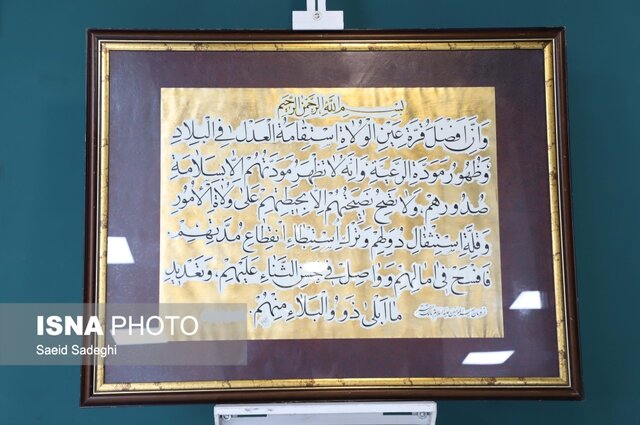 بسم الله الرحمن الرحيم
وَاِنَّ اَفضَلَ قُرَّةِ عَینِ الوُلاةِ استِقامَةُ العَدلِ فِی البِلادِ
وَ ظُهورُ مَوَدَّةِ الرَّعِیَّةِ وَ اِنَّهُ لا تَظهَرُ مَوَدَّتُهُم اِلّا بِسَلامَةِ
صُدورِهِم، وَلا تَصِحُّ نَصیحَتُهُم اِلّا بِحیطَتِهِم عَلی وُلاةِ الاُمورِ
وَ قِلَّةِ استِثقالِ دُوَلِهِم وَ تَرکِ استِبطاءِ انقِطاعِ مُدَّتِهِم
فَافسَح فی آمالِهِم وَ واصِل فی حُسنِ الثَّناءِ عَلَیهِم، وَ تَعدیدِ
ما اَبلی ذَوُو البَلاءِ مِنهُم.
ISNA PHOTO
Saeid Sadeghi